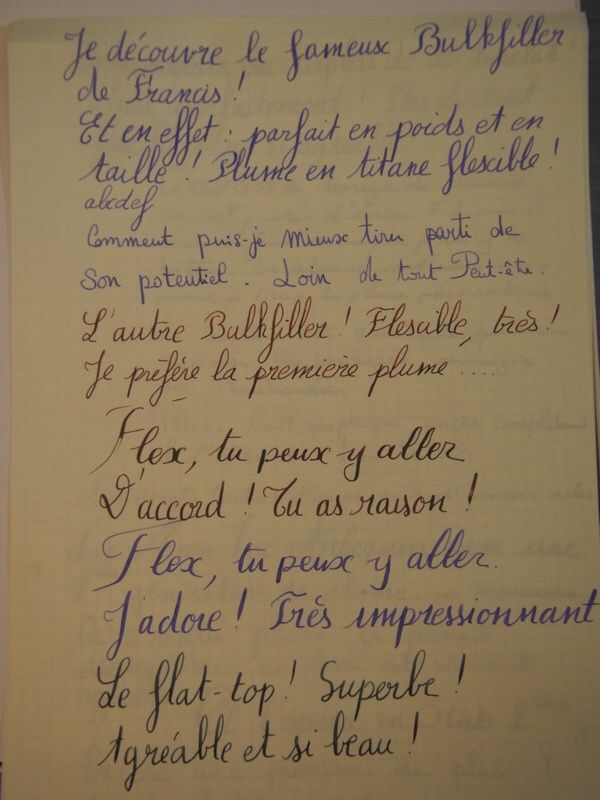 Je découvre le fameux Bulkfiller
de Francis !
Et en effet : parfait en poids et en
taille ! Plume en titane flexible !
abcdef
Comment puis-je mieux tirer parti de
Son potentiel . Loin de tout Peut-être.
L'autre Bulkfiller ! Flexible, très !
Je préfère la premiere plume ....
Flex, tu peux y aller
D'accord ! Tu as raison !
Flex, tu peux y aller.
J'adore ! Très impressionnant
Le flat-top ! Superbe !
Agréable et si beau !